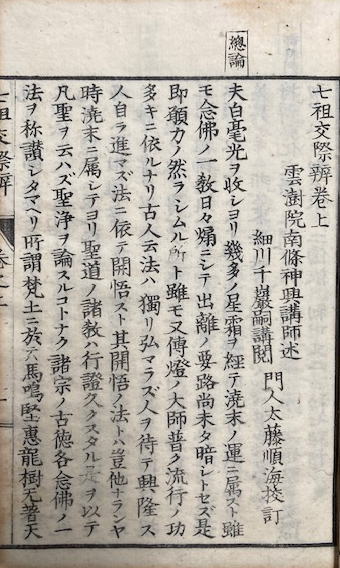 總論
七祖交際辨卷上
雲澍院南條神興講師述
門人太藤順海挍訂
細川千巖嗣講閲
夫白毫光ヲ收シヨリ幾多ノ星霜ヲ經テ澆末ノ運ニ属スト雖
モ念佛ノ一教日々熾ニシテ出離ノ要路尚未タ暗レトセズ是
即願力ノ然ラシムル所ト雖モ又傳燈ノ大師普ク流行ノ功
多キニ依ルナリ古人云法ハ獨リ弘マラズ人ヲ待テ興隆ス
人自ラ進マズ法ニ依テ開悟スト其開悟ノ法トハ豈他ナランヤ
時澆末ニ属シテヨリ聖道ノ諸教ハ行證久クスタル是ヲ以テ
凡聖ヲ云ハズ聖浄ヲ論スルコトナク諸宗ノ古德各念佛ノ一
法ヲ称讃シタマヘリ所謂梵土ニ於テハ馬鳴堅惠龍樹无著天
七祖交際辨